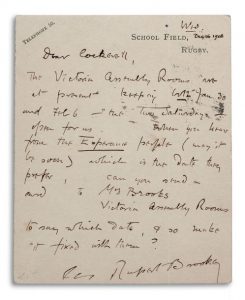 TELEPHONE 50.
Wed.
SCHOOL FIELD,
RUGBY.
Dear Cockerell,
The Victoria Assembly Rooms are
at present keeping Jan 30
and Feb 6 – the two Saturdays –
open for us. When you hear
from the Esperance people (may it
be soon) which is the date they
prefer, can you send a
card to Mrs Brooks
Victoria Assembly Rooms
to say which date, & so make
it fixed with them?
Rupert Brooke